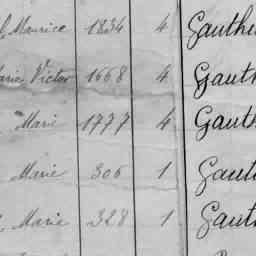 Maurice 1834 4 Gauthe
Marie Victor 1668 4 Gauth
Marie 1777 4 Gauth
Marie 306 1 Gaut
Marie 328 1 Gaut